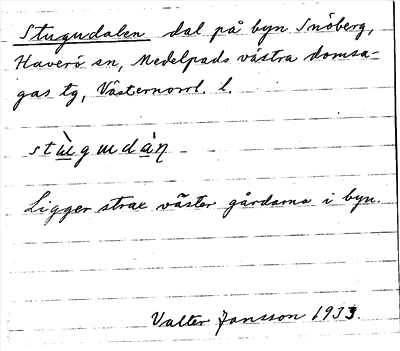 Stugudalen dal på byn Snöberg,
Haverö sn, Medelpads västra domsa-
gas tg, Västernorrl. l.
stùgudàn
Ligger strax väster gårdarna i byn.
Valter Jansson 1933.